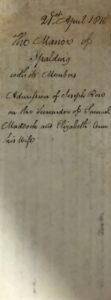 28th April 18
The Manor of
Spalding
with its Members
Admission of Joseph
on the Surrender of Samuel
Maddocks and Elizabeth Ann
his Wife